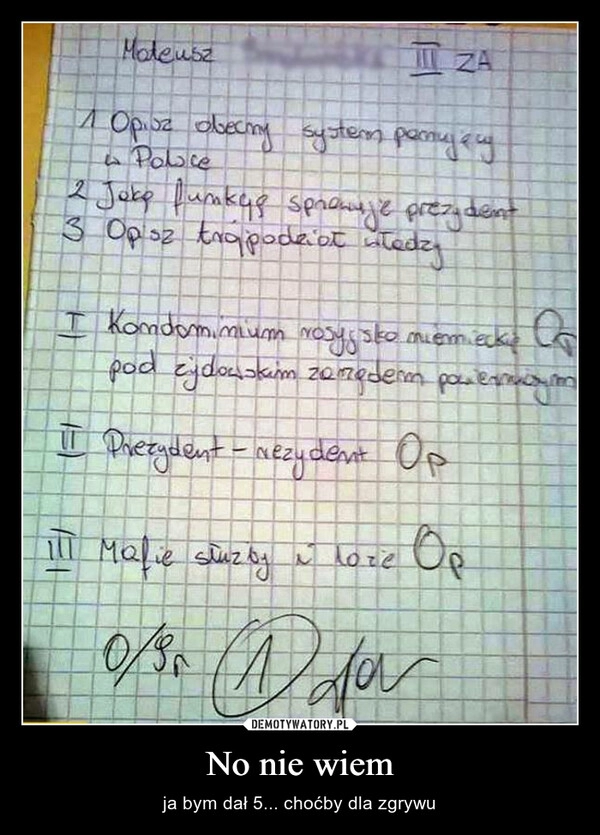 Mateusz III ZA
1 Opisz obecny system panujący
w Polsce
2 Jaką funkcję sprawuje prezydent
3 Opisz trójpodział władzy
I Kondominium rosyjsko niemieckie 0p
pod żydowskim zarządem powierniczym
II Prezydent - rezydent 0p
III Mafie służby i loże 0p
0/9p 1
DEMOTYWATORY.PL
No nie wiem
ja bym dał 5... choćby dla zgrywu